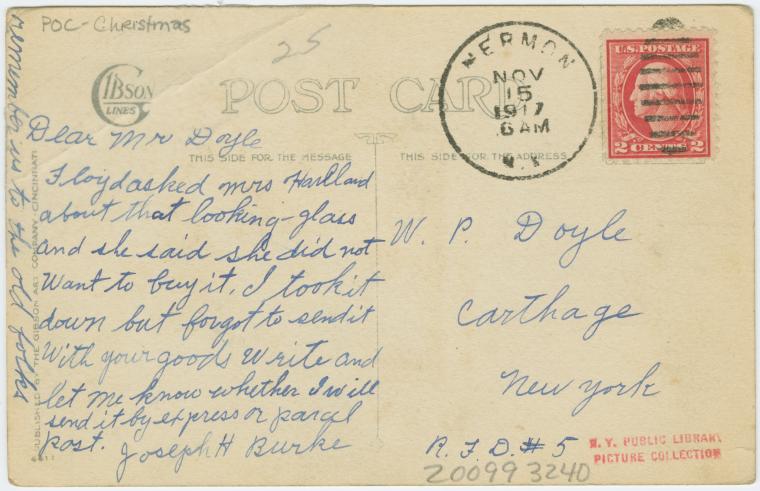 POC-Christmas
25
GIBSON
LINES
POST CARD
THIS SIDE FOR THE MESSAGE
THIS SIDE FOR THE ADDRESS
NOV
15
1917
6 AM
N.Y.
U.S. POSTAGE
2 CENTS 2
Dear Mr Doyle
Floyd asked Mrs Hartland
about that looking-glass
and she said she did not
Want to buy it. I took it
down but forgot to send it
With your goods Write and
let me know whether I will
send it by express or parcel
post.
Joseph H Burke
remember us to the old folks
W. P. Doyle
Carthage
New York
R. F. D. # 5
PUBLISHED BY THE GIBSON ART COMPANY, CINCINNATI
N.Y. PUBLIC LIBRARY
PICTURE COLLECTION
200993240